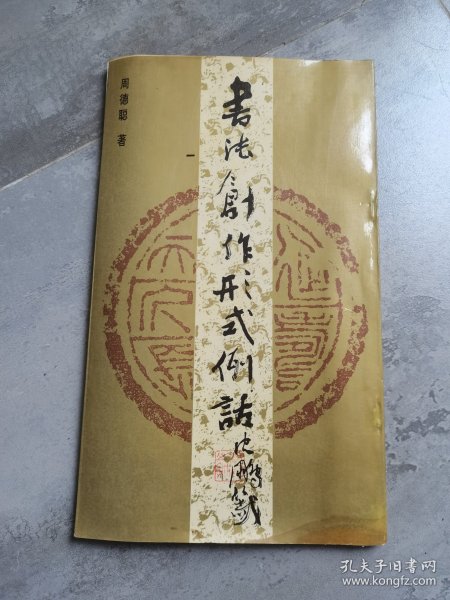 周德聪 著
书法創作形式例話
沈鹏籤
孔夫子旧书网
www.kongfz.com